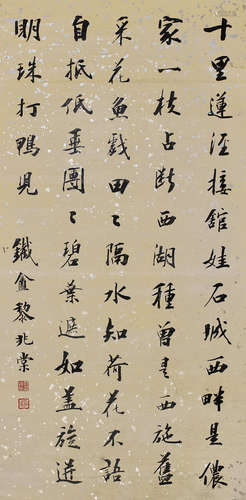 十里蓮涇接舘娃石城西畔是儂
家一枝占斷西湖種曾是西施舊
采花魚戲田〻隔水知荷花不語
自抵低垂團〻碧葉遮如蓋旋迸
明珠打鴨見
鐵盦黎兆棠